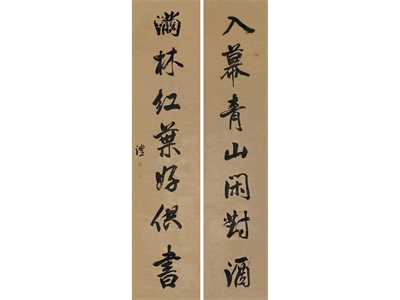 入幕青山閑對酒
滿林红葉好供書
澧